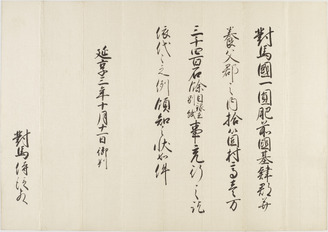 對馬國一圓肥前國基肄郡并
養父郡之内拾八箇村高壹万
三千四百石餘目録在別紙事充行之訖
依代々之例領知之状如件
延享三年十月十一日御判
對馬侍従殿